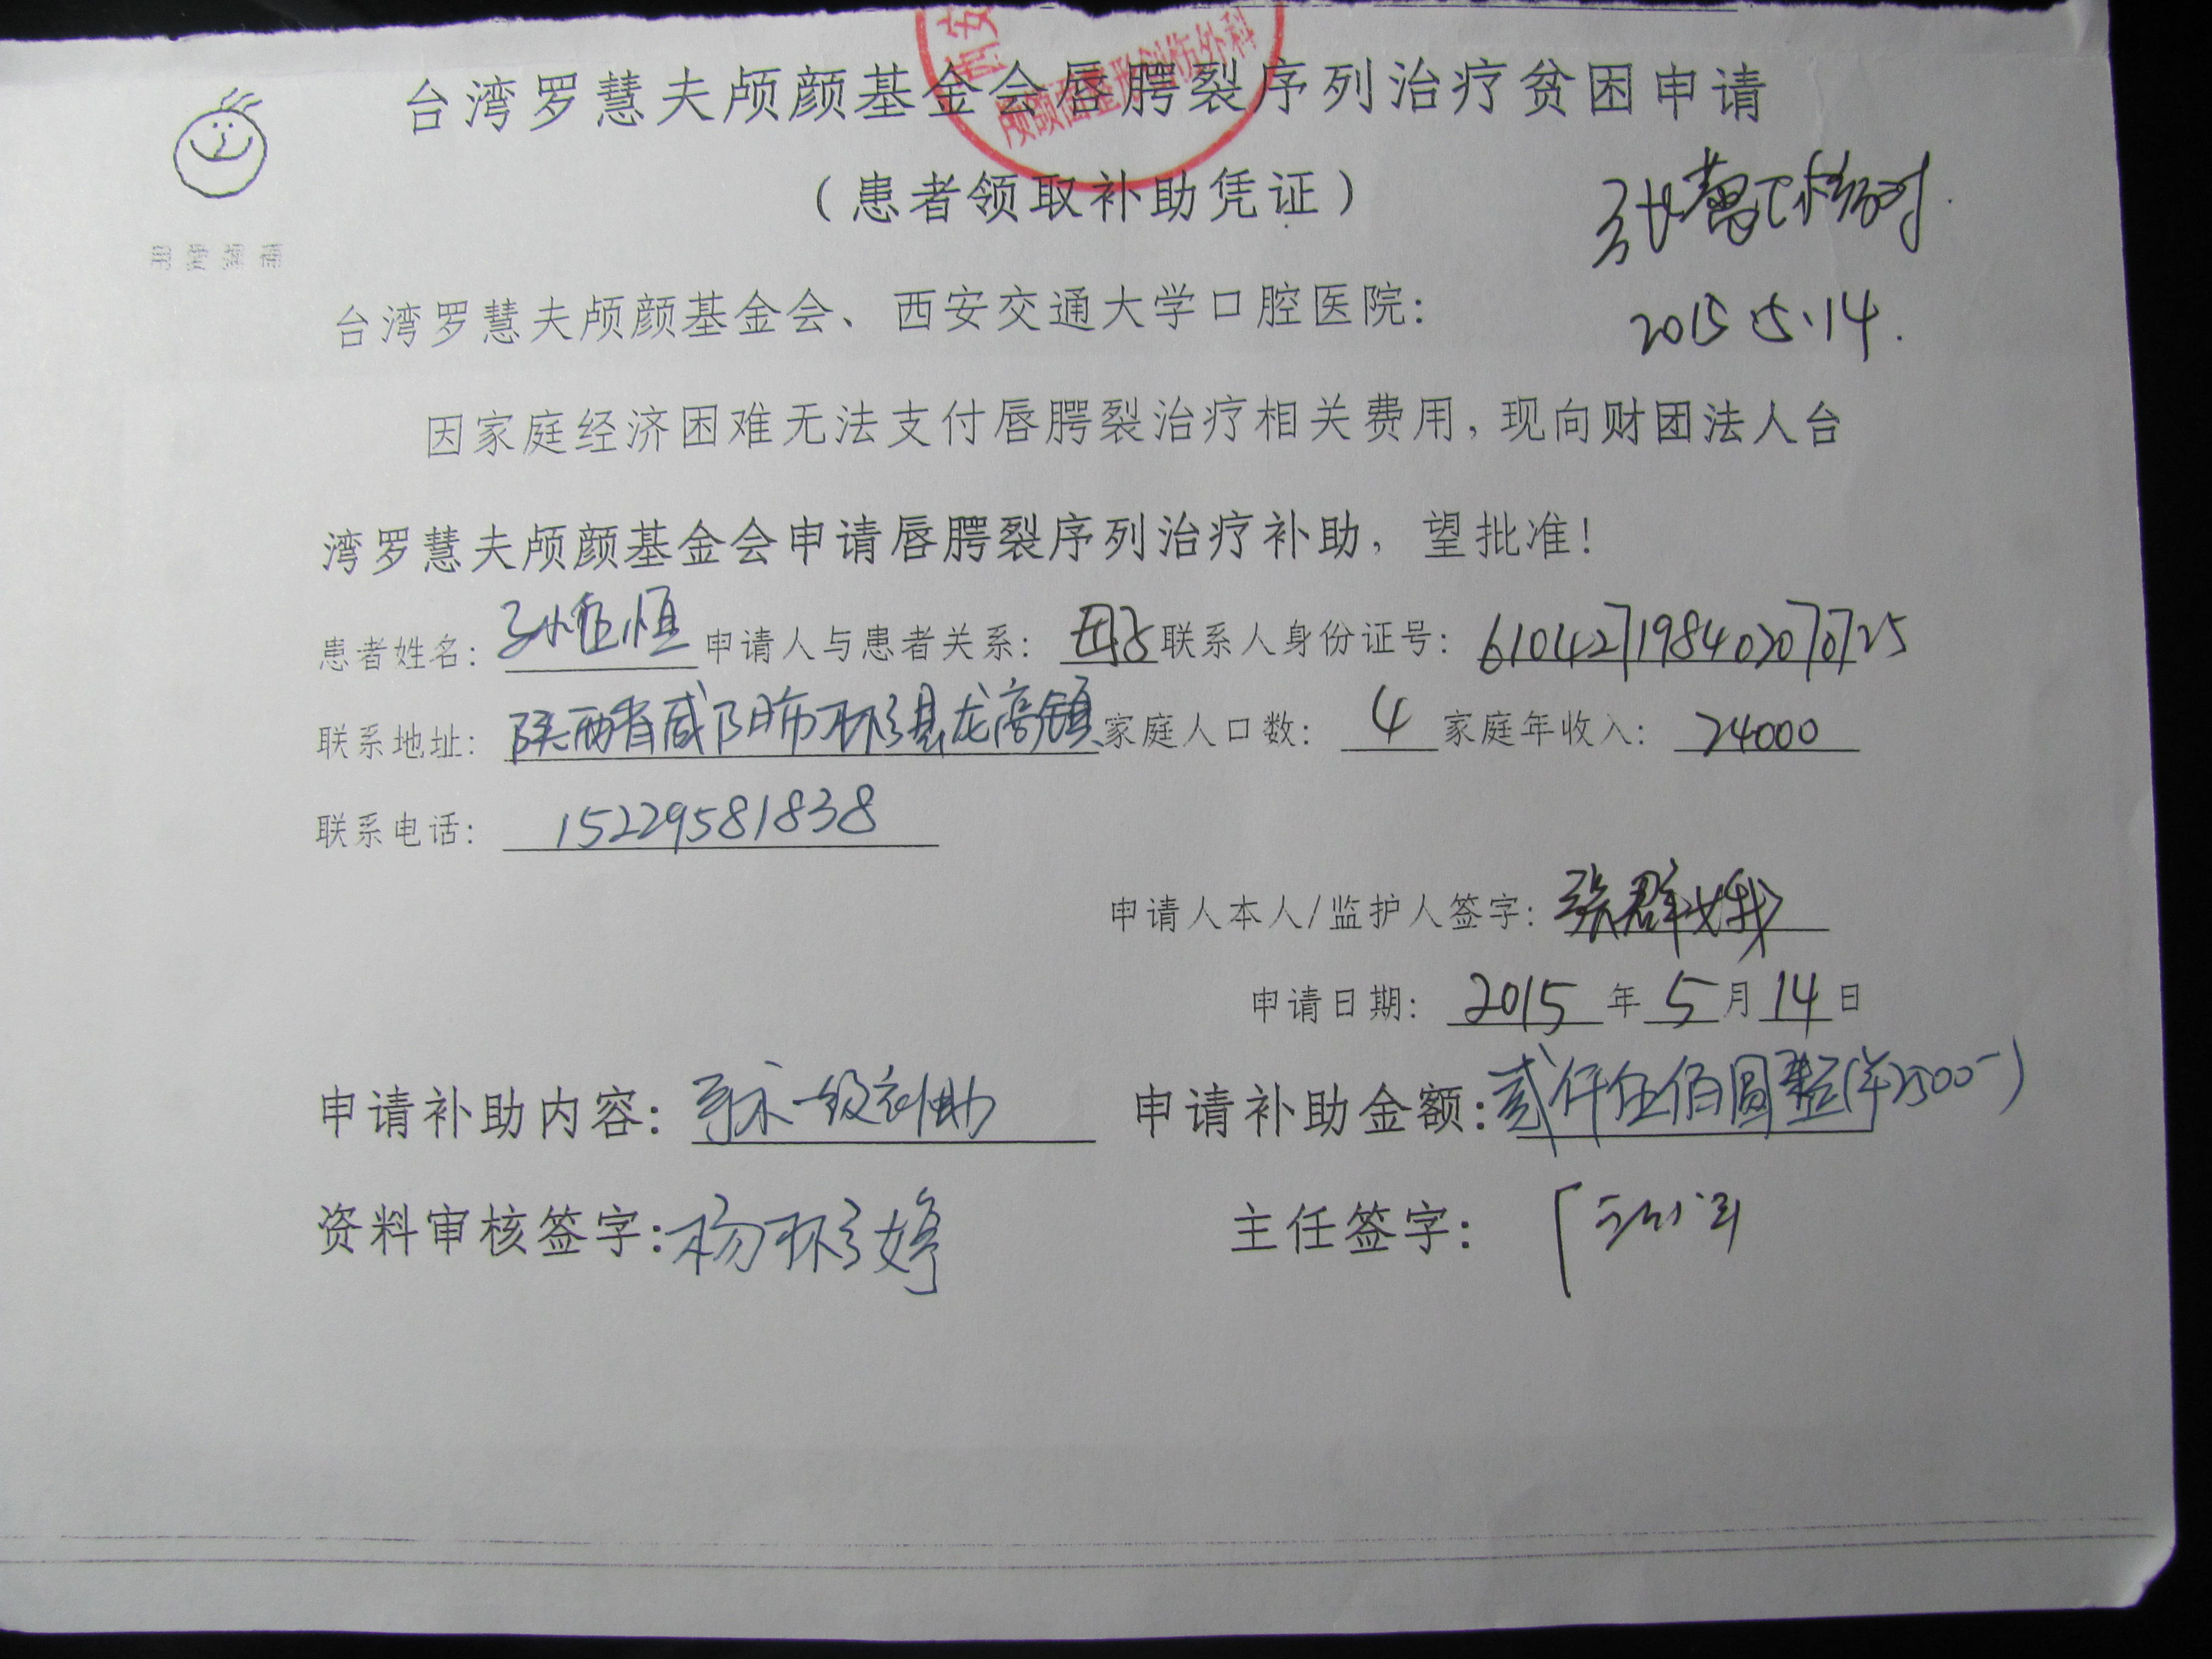 台湾罗慧夫颅颜基金会唇腭裂序列治疗贫困申请
西安
颅颌面整形创伤外科
（患者领取补助凭证）
核对.
2015.5.14.
用爱弥补
台湾罗慧夫颅颜基金会、西安交通大学口腔医院：
因家庭经济困难无法支付唇腭裂治疗相关费用，现向财团法人台
湾罗慧夫颅颜基金会申请唇腭裂序列治疗补助，望批准！
患者姓名： 孙恒恒 申请人与患者关系： 母子 联系人身份证号： 610427198402070725
联系地址： 陕西省咸阳市彬县龙高镇 家庭人口数： 4 家庭年收入： 24000
联系电话： 15229581838
申请人本人/监护人签字： 张群娥
申请日期： 2015 年 5 月 14 日
申请补助内容： 手术一级补助 申请补助金额： 贰仟伍佰圆整(￥2500-)
资料审核签字： 杨彬婷 主任签字：